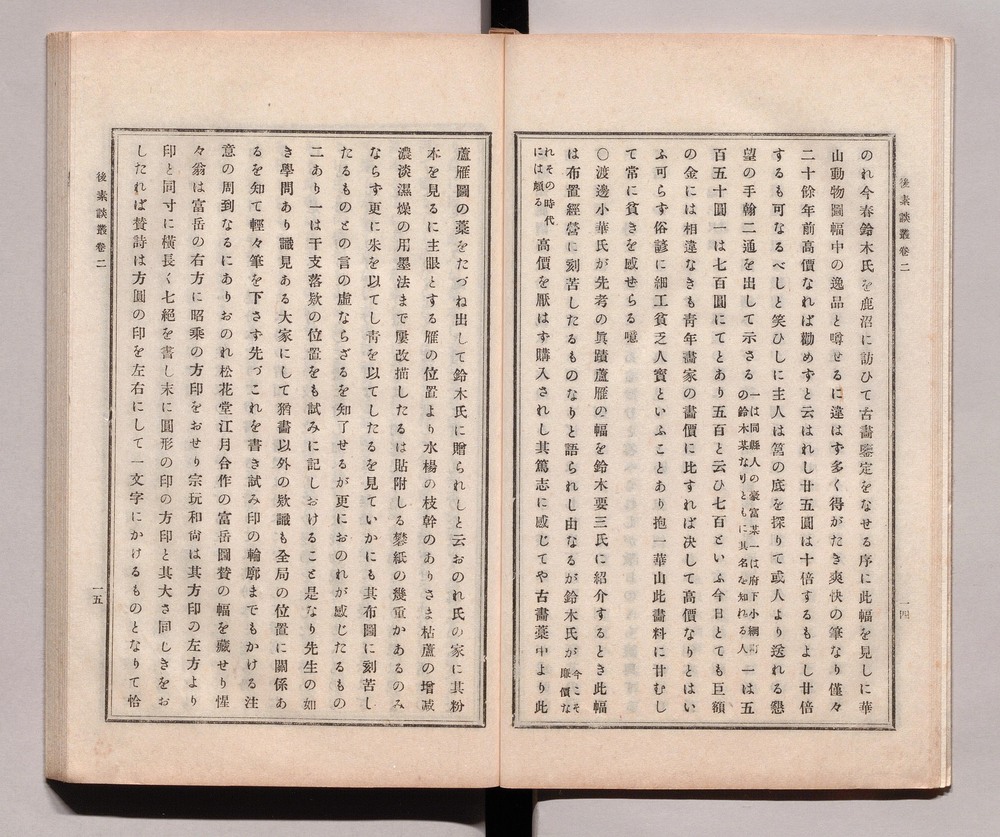 後素談叢卷二
一四
のれ今春鈴木氏を鹿沼に訪ひて古畵鑒定をなせる序に此幅を見しに華
山動物圖幅中の逸品と噂せるに違はす多く得がたき爽快の筆なり僅々
二十餘年前高價なれば勸めすと云はれし廿五圓は十倍するもよし廿倍
するも可なるべしと笑ひしに主人は筥の底を探りて或人より送れる懇
望の手翰二通を出して示さる一は同縣人の豪富某一は府下小綱町の鈴木某なりともに其名を知れる人一は五
百五十圓一は七百圓にてとあり五百と云ひ七百といふ今日とても巨額
の金には相違なきも靑年畵家の畵價に比すれば决して高價なりとはい
ふ可らす俗諺に細工貧乏人寳といふことあり抱一華山此畵料に甘むし
て常に貧きを感せらる噫
〇渡邊小華氏が先考の眞蹟蘆雁の幅を鈴木要三氏に紹介するとき此幅
は布置經營に刻苦したるものなりと語られし由なるが鈴木氏が今こそ廉價な
れその時代には頗る高價を厭はす購入されし其篤志に感じてや古畵藁中より此
蘆雁圖の藁をたづね出して鈴木氏に贈られしと云おのれ氏の家に其粉
本を見るに主眼とする雁の位置より水楊の枝幹のありさま枯蘆の增减
濃淡濕燥の用墨法まで屢改描したるは貼附しる礬紙の幾重かあるのみ
ならす更に朱を以てし靑を以てしたるを見ていかにも其布圖に刻苦し
たるものとの言の虛ならざるを知了せるが更におのれが感じたるもの
二あり一は干支落欵の位置をも試みに記しおけること是なり先生の如
き學問あり識見ある大家にして猶畵以外の欵識も全局の位置に關係あ
るを知て輕々筆を下さす先づこれを書き試み印の輪廓までもかける注
意の周到なるにありおのれ松花堂江月合作の富岳圖贊の幅を藏せり惺
々翁は富岳の右方に昭乘の方印をおせり宗玩和尙は其方印の左方より
印と同寸に橫長く七絕を書し末に圓形の印の方印と其大さ同しきをお
したれば贊詩は方圓の印を左右にして一文字にかけるものとなりて恰
後素談叢卷二
一五